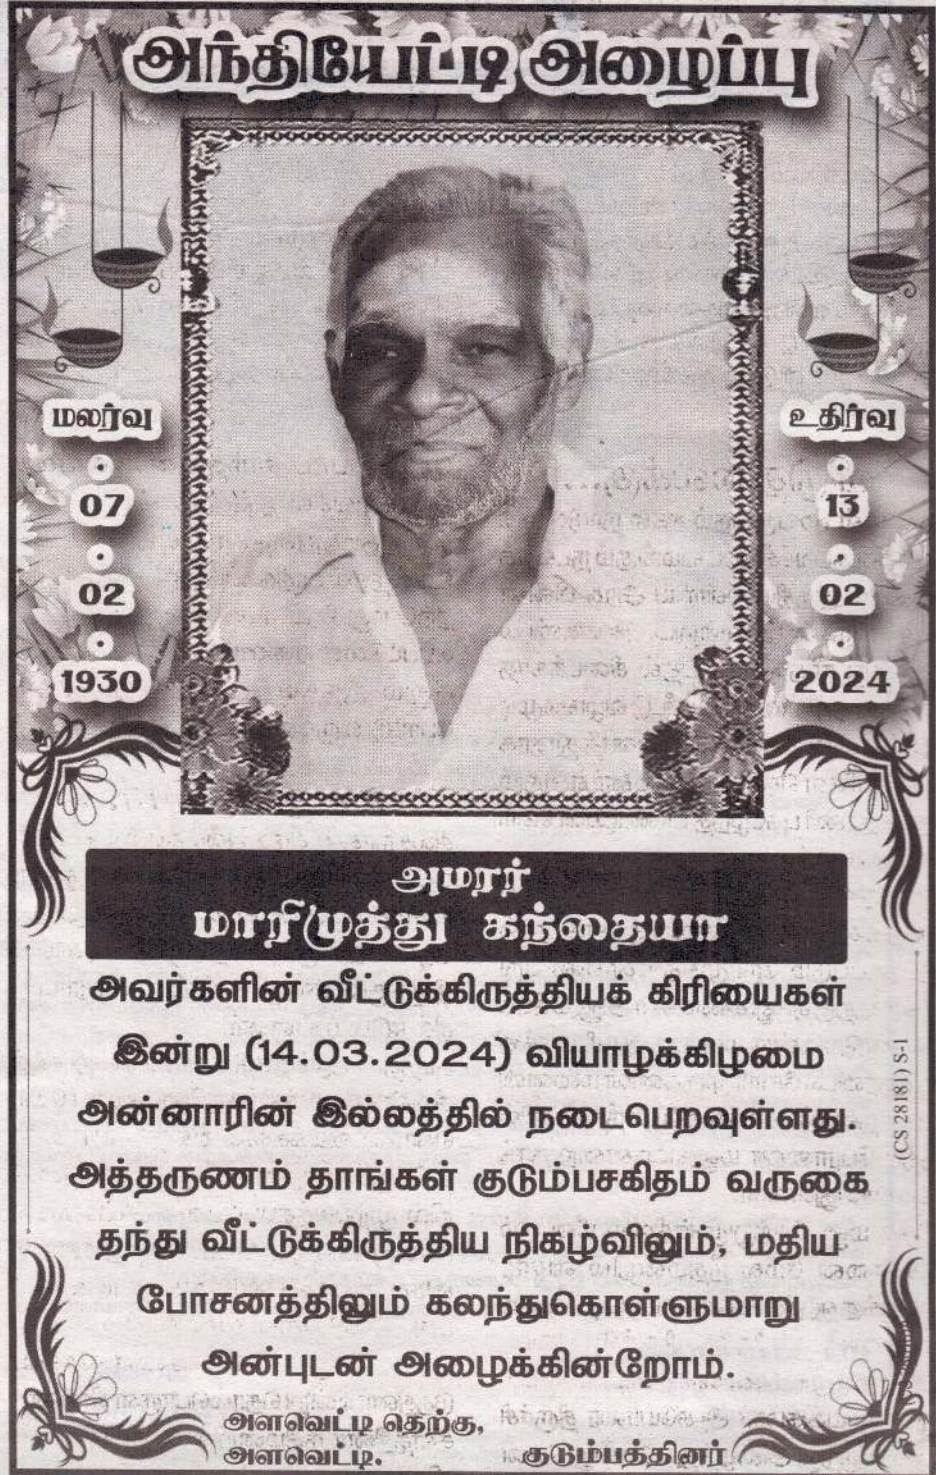 அந்தியேட்டி அழைப்பு
மலர்வு
07
02
1930
உதிர்வு
13
02
2024
அமரர்
மாரிமுத்து கந்தையா
அவர்களின் வீட்டுக்கிருத்தியக் கிரியைகள்
இன்று (14.03.2024) வியாழக்கிழமை
அன்னாரின் இல்லத்தில் நடைபெறவுள்ளது.
அத்தருணம் தாங்கள் குடும்பசகிதம் வருகை
தந்து வீட்டுக்கிருத்திய நிகழ்வினும், மதிய
போசனத்திலும் கலந்துகொள்ளுமாறு
அன்புடன் அழைக்கின்றோம்.
அளவெட்டி தெற்கு,
அளவெட்டி.
குடும்பத்தினர்
(CS 28181) S-1